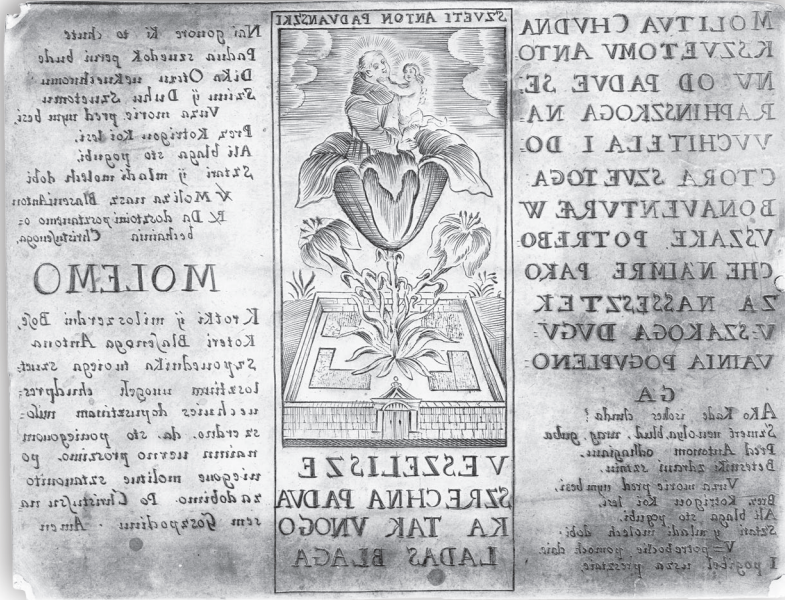 MOLITVA CHVDNA
KSZVETOMV ANTO:
NV OD PADVE SE:
RAPHINSZKOGA NA:
VVCHITELA I DO:
CTORA SZVETOGA
BONAVENTVRÆ W
VSZAKE POTREBO:
CHE NAIMRE PAKO
ZA NASSESZTEK
VSZAKOGA DVGV:
VAINIA POGVBLENO:
GA
Ako Kade chuda?
Szmert blud, urag, guba
Pred Antonom
zdrau
Vuza morie pred nym besi,
Brez Kotrigou Koi lesi,
Ali blaga sto pogubi.
Sztari y mladi molech dobi.
V potreboche pomoch daie
I pogibel usza presztaie
SZVETI ANTON PADVANSZKI
VESZELI SZE
SZRECHNA PADVA
KA TAK VNOGO
LADAS BLAGA
Nai gouore Ki to chute
Padua pervi bude
Dika Otczu
Szinu y Duhu Szuetomu
Vuza morie pred nym besi,
Brez Kotrigou Koi lesi,
Ali blaga sto pogubi,
Sztari y mladi molech dobi
V Moli za nasz Blaseni Anton
R Da dosztoini posztanemo o:
bechainia Christusseuoga.
MOLEMO
Krotki y miloszerdni Bose,
Koteri Blasenoga Antona
Szpouednika tuoiega
chudpres:
milo:
szerdno, da, sto
naimu uerno proszimo, po
niegoue molitue
zadobimo. Po Christussu na
sem Goszpodinu. Amen